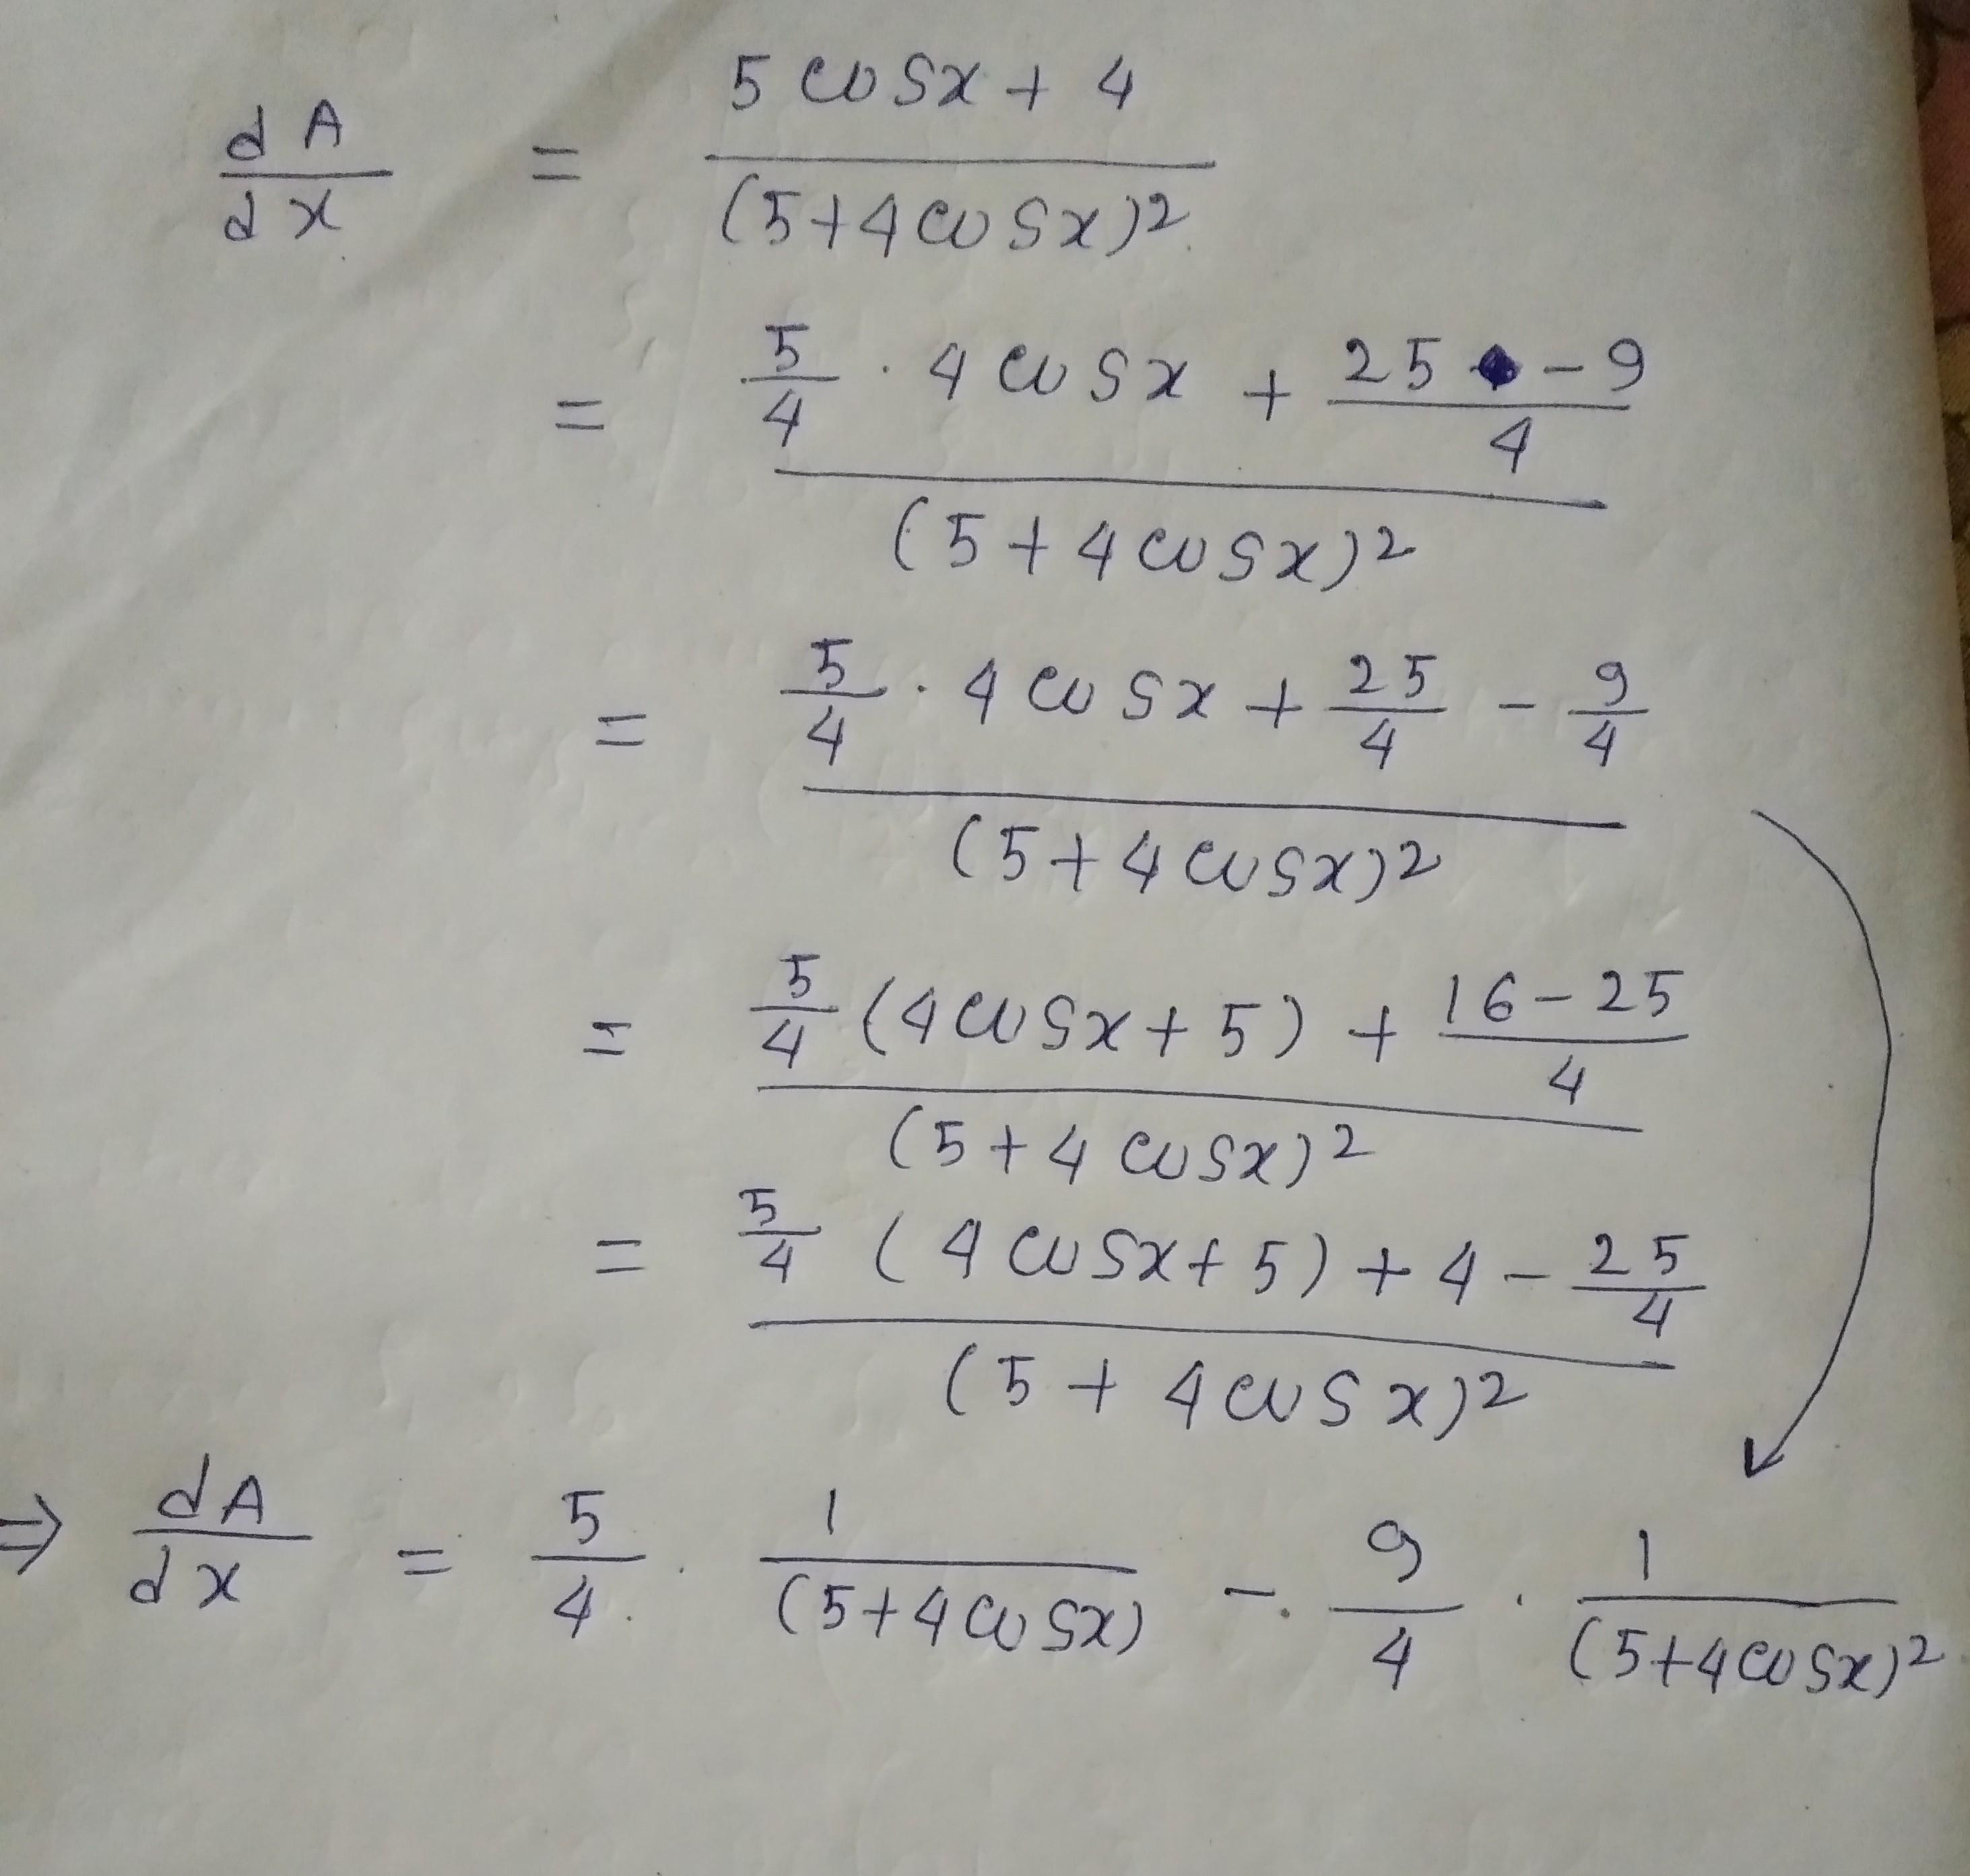 dA/dx = (5 cosx + 4)/(5+4cosx)²
= (5/4 · 4cosx + (25 - 9)/4)/(5+4cosx)²
= (5/4 · 4cosx + 25/4 - 9/4)/(5+4cosx)²
= (5/4 (4cosx+5) + (16-25)/4)/(5+4cosx)²
= (5/4 (4cosx+5) + 4 - 25/4)/(5+4cosx)²
⇒ dA/dx = 5/4 · 1/(5+4cosx) - 9/4 · 1/(5+4cosx)²